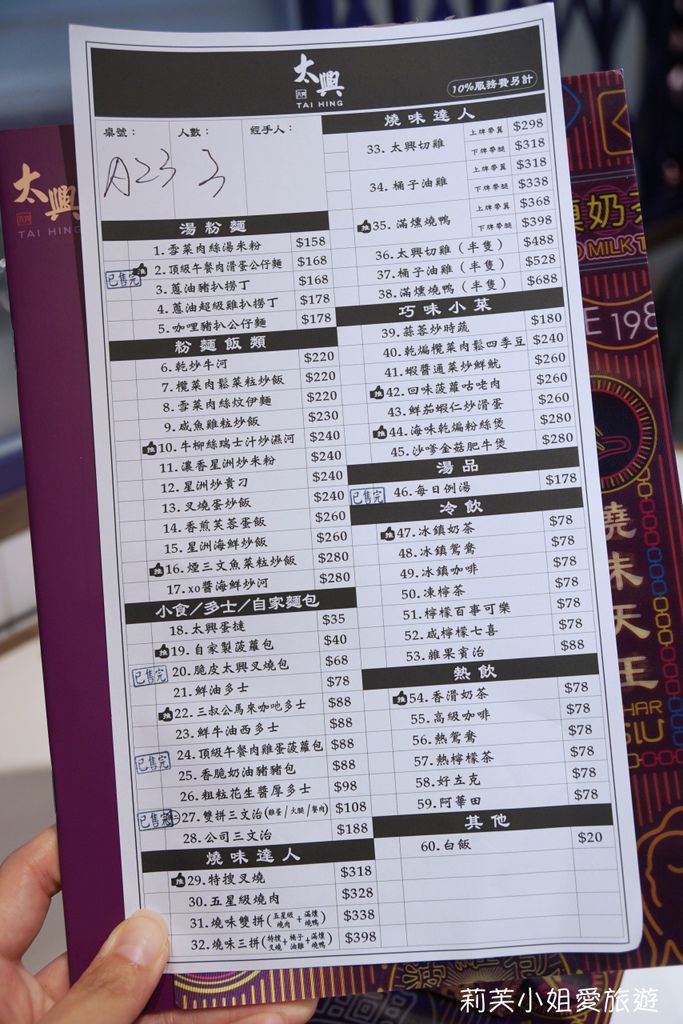 太興
TAI HING
10%服務費另計
桌號：
人數：
經手人：
A23
3
湯粉麵
1. 雪菜肉絲湯米粉 $158
已售完 推 2. 頂級午餐肉滑蛋公仔麵 $168
3. 蔥油豬扒撈丁 $168
4. 蔥油超級雞扒撈丁 $178
5. 咖哩豬扒公仔麵 $178
粉麵飯類
6. 乾炒牛河 $220
7. 欖菜肉鬆菜粒炒飯 $220
8. 雪菜肉絲炆伊麵 $220
9. 咸魚雞粒炒飯 $230
推 10. 牛柳絲瑞士汁炒濕河 $240
11. 濃香星洲炒米粉 $240
12. 星洲炒貴刁 $240
13. 叉燒蛋炒飯 $240
14. 香煎芙蓉蛋飯 $260
15. 星洲海鮮炒飯 $260
推 16. 煙三文魚菜粒炒飯 $280
17. xo醬海鮮炒河 $280
小食/多士/自家麵包
18. 太興蛋撻 $35
推 19. 自家製菠蘿包 $40
已售完 20. 脆皮太興叉燒包 $68
21. 鮮油多士 $78
推 22. 三叔公馬來咖吔多士 $88
23. 鮮牛油西多士 $88
已售完 24. 頂級午餐肉雞蛋菠蘿包 $88
25. 香脆奶油豬豬包 $88
26. 粗粒花生醬厚多士 $98
已售完 27. 雙拼三文治(雞蛋/火腿/餐肉) $108
28. 公司三文治 $188
燒味達人
推 29. 特搜叉燒 $318
30. 五星級燒肉 $328
31. 燒味雙拼(五星級燒肉+滿爐燒鴨) $338
32. 燒味三拼(特搜叉燒+桶子油雞+滿爐燒鴨) $398
燒味達人
33. 太興切雞 上牌帶翼 $298
下牌帶腿 $318
34. 桶子油雞 上牌帶翼 $318
下牌帶腿 $338
推 35. 滿爐燒鴨 上牌帶翼 $368
下牌帶腿 $398
36. 太興切雞（半隻） $488
37. 桶子油雞（半隻） $528
38. 滿爐燒鴨（半隻） $688
巧味小菜
39. 蒜蓉炒時蔬 $180
40. 乾煸欖菜肉鬆四季豆 $240
41. 蝦醬通菜炒鮮魷 $260
推 42. 回味菠蘿咕咾肉 $260
43. 鮮茄蝦仁炒滑蛋 $260
推 44. 海味乾煸粉絲煲 $280
45. 沙嗲金菇肥牛煲 $280
湯品
已售完 46. 每日例湯 $178
冷飲
推 47. 冰鎮奶茶 $78
48. 冰鎮鴛鴦 $78
49. 冰鎮咖啡 $78
50. 凍檸茶 $78
51. 檸檬百事可樂 $78
52. 咸檸檬七喜 $78
53. 雜果賓治 $88
熱飲
推 54. 香滑奶茶 $78
55. 高級咖啡 $78
56. 熱鴛鴦 $78
57. 熱檸檬茶 $78
58. 好立克 $78
59. 阿華田 $78
其他
60. 白飯 $20
太興
TAI HING
奶茶
MILK T
E 198
燒味天王
CHAR
SIU
莉芙小姐愛旅遊